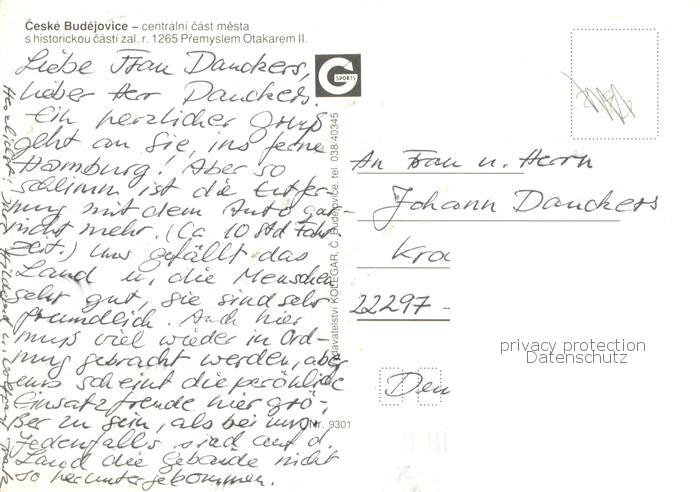 České Budějovice – centrální část města
s historickou částí zal. r. 1265 Přemyslem Otakarem II.
Liebe Frau Danckers,
lieber Herr Danckers.
Ein herzlicher Gruß
geht an Sie, ins ferne
Hamburg! Aber so
schlimm ist die Entfer-
nung mit dem Auto gar
nicht mehr. (Ca 10 Std Fahr-
zeit.) Uns gefällt das
Land u. die Menschen
sehr gut, sie sind sehr
freundlich. Auch hier
muß viel wieder in Ord-
nung gebracht werden, aber
uns scheint die persönliche
Einsatzfreude hier grö-
ßer zu sein, als bei uns.
Jedenfalls sind auf d.
Land die Gebäude nicht
so heruntergekommen.
Herzlichst
u. Wolfgang
G SPORTS
KOLEGAR, Č. Budějovice, tel. 038/40345
Nr. 9301
An Frau u. Herrn
Johann Danckers
Kro
22297 -
privacy protection
Datenschutz
Den